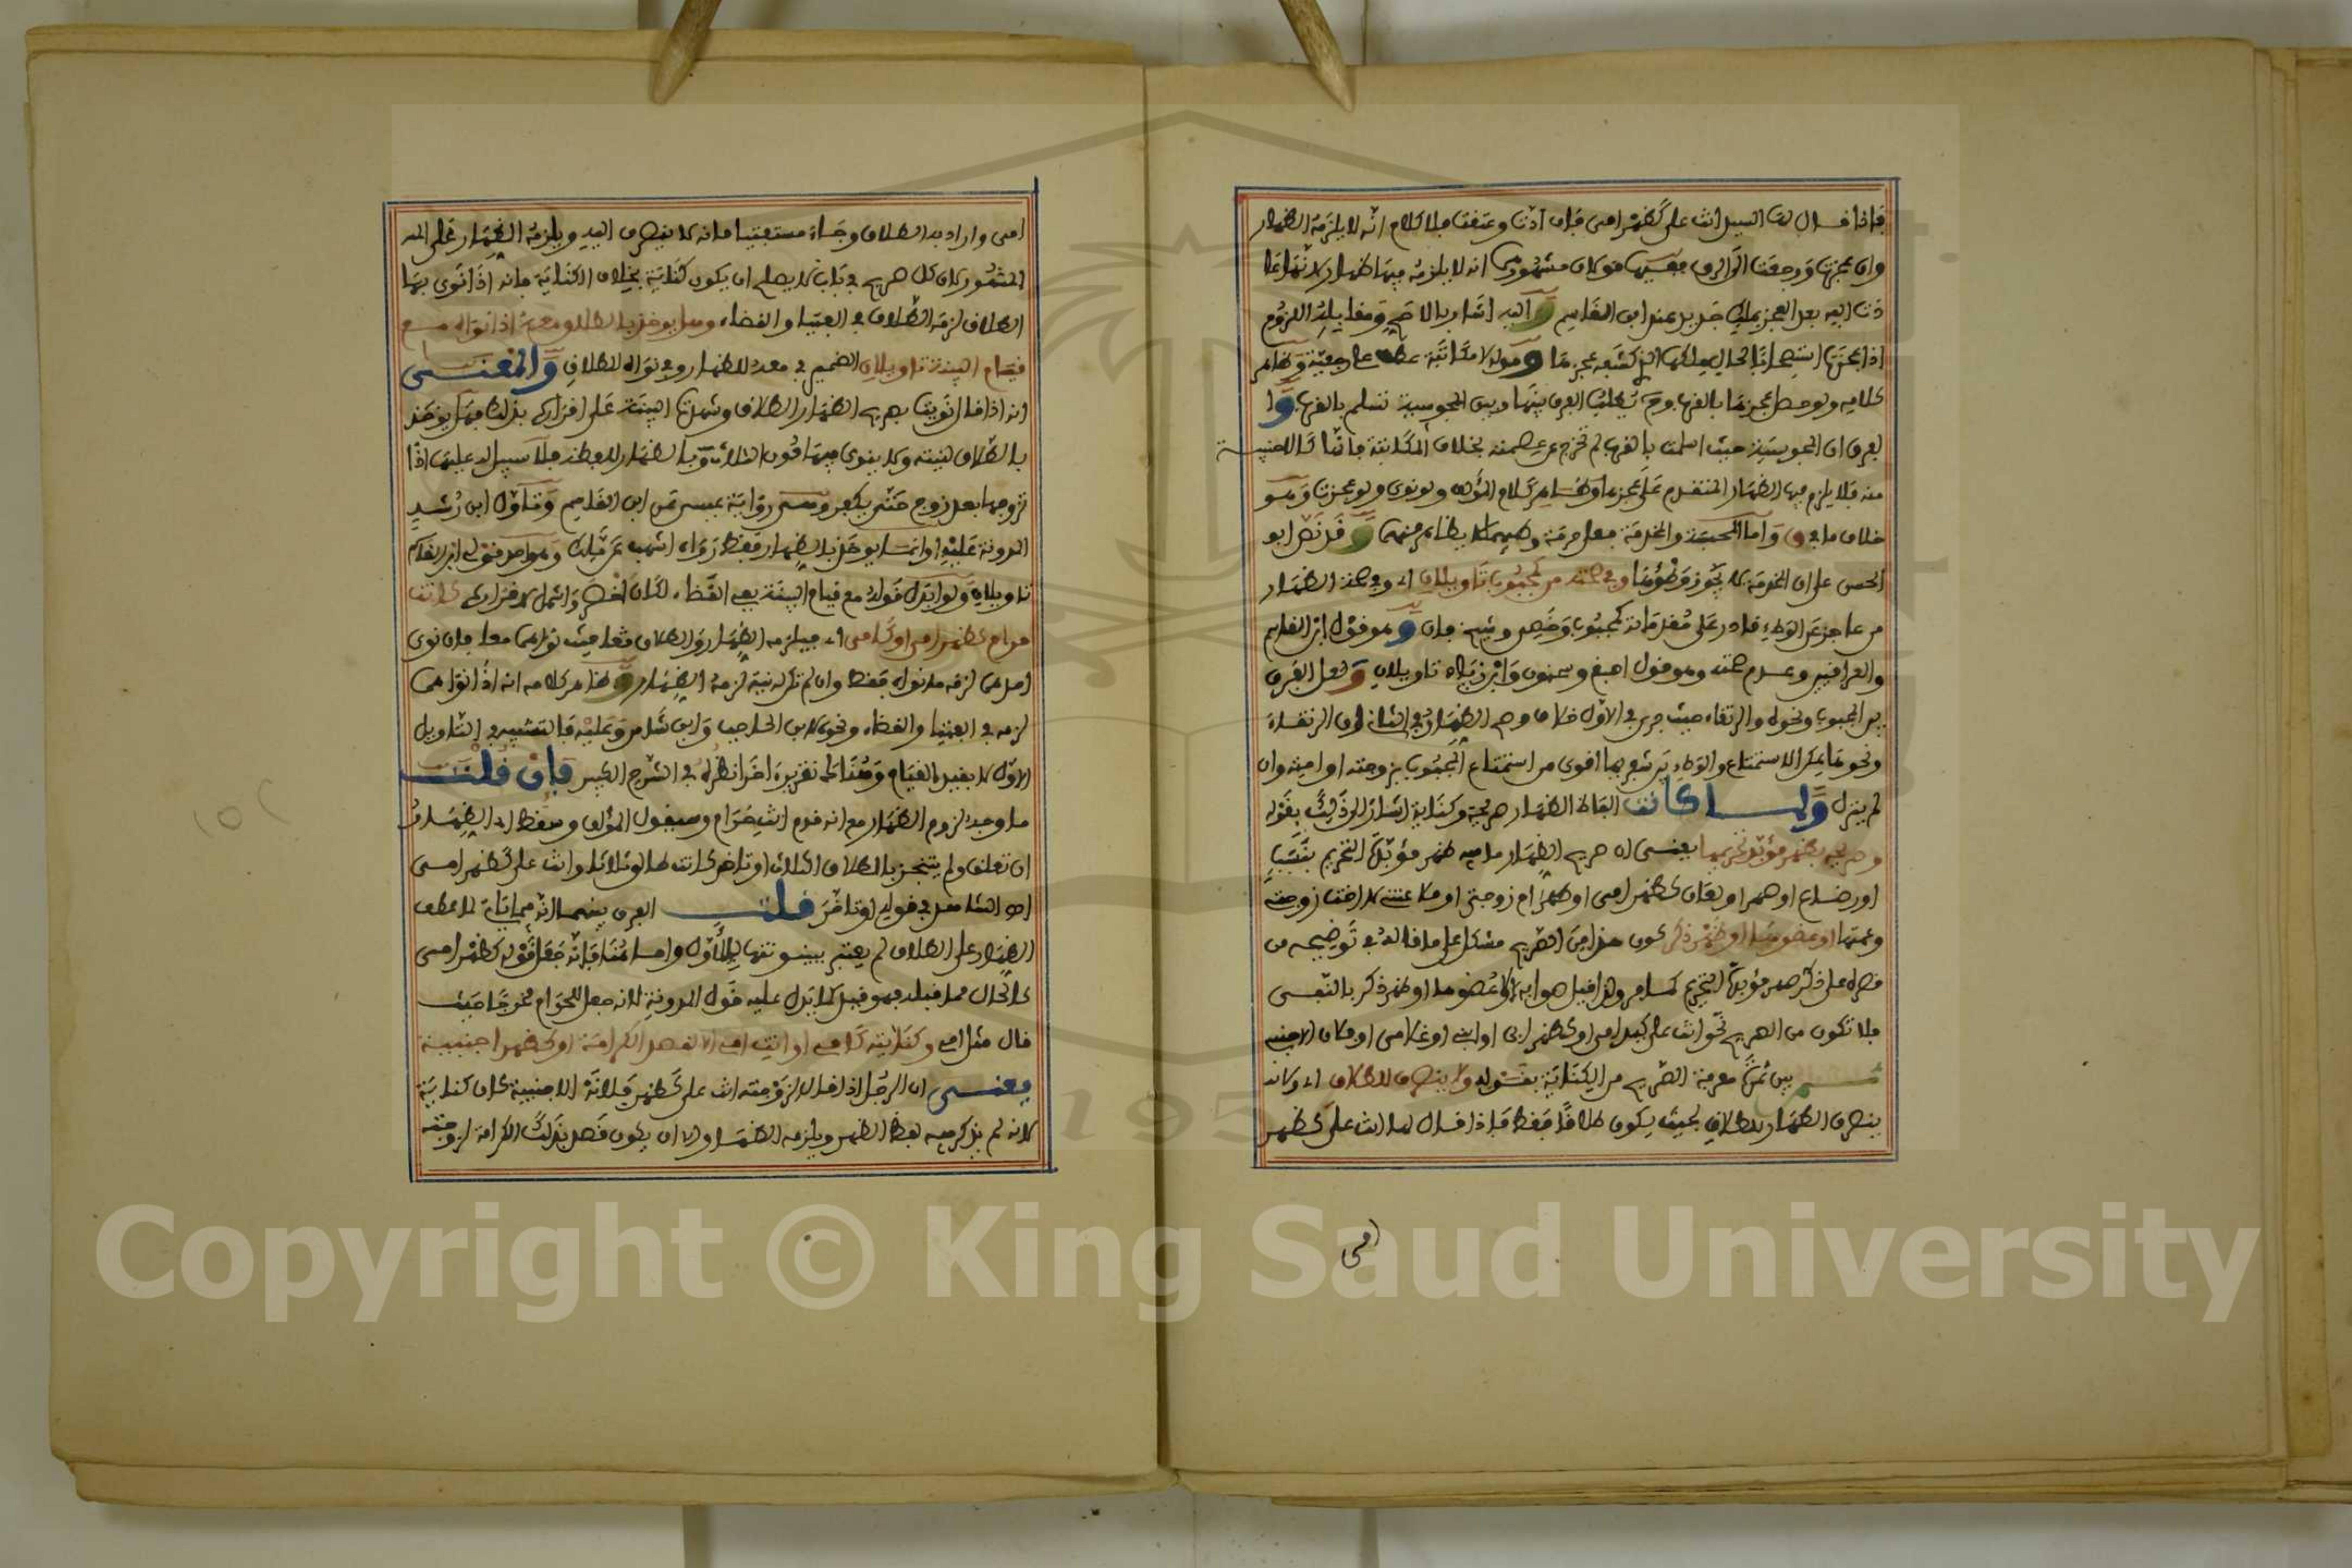 فاذا قال لها السيد انت علي كظهر امي فان ادت وعتقت فلا كلام انه لا يلزمه الظهار
وان عجزت ورجعت الى الرق ففيها قولان مشهورهما انه لا يلزمه فيها ظهار لانها عا
دت اليه بعد العجز بملك جديد عند ابن القاسم واليه اشار بالاصح ومقابله اللزوم
اذا عجزت استصحابا لحال ملكها الذي كشفه عجزها وقوله لا مكاتبة عطف على رجعية وظاهر
كلامه ولو حصل عجزها بالقرب
لفرق ان المجوسية حيث اسلمت بالقرب لم تخرج عن عصمته بخلاف المكاتبة فانها كالاجنبية
منه فلا يلزم فيها الظهار المتقدم على عجزها وظاهر كلام المؤلف ولو نوى ولو عجزت وهو
خلاف ما في ق واما المحبسة والمخدمة فعل حرمة وطئهما لا يظاهر منهما وقد نص ابو
الحسن على ان المخدمة لا يجوز وطؤها وفي صحته من كمجبوب تاويلان اي وفي صحة الظهار
من عاجز عن الوطء قادر على مقدماته كمجبوب وخصي وشيخ فان وهو قول ابن القاسم
والعراقيين وعدم صحته وهو قول اصبغ وسحنون وابن زياد تاويلان ولعل الفرق
بين المجبوب ونحوه والرتقاء حيث جرى في الاول خلاف وصح الظهار في الثاني ان الرتقاء
ونحوها يمكن الاستمتاع والوطء بين شفريها اقوى من استمتاع المجبوب بزوجته او امته وان
لم ينزل ولما كانت الفاظ الظهار صريحة وكناية اشار الى ذلك بقوله
وصريحه بظهر مؤبد تحريمها يعني ان صريح الظهار ما فيه ظهر مؤبد التحريم بنسب
او رضاع او صهر او لعان كظهر امي او ظهر ام زوجتي او ملاعنتي لا اخت زوجته
وعمتها او عضوها او ظهر ذكر كون هذا من الصريح مشكل على ما قاله في توضيحه من
قصره على ذكر ظهر مؤبد التحريم كما مر ولذا قيل صوابه لا عضوها او ظهر ذكر بالنفي
فلا تكون من الصريح نحو انت علي كيد امي او كظهر ابي او ابني او غلامي او فلان الاجنبي
ثم بين ثمرة معرفة الصريح من الكناية بقوله ولا ينصرف للطلاق اي ولا
ينصرف الظهار للطلاق بحيث يكون طلاقا فقط فاذا قال لها انت علي كظهر
امي
امي واراد به الطلاق وجاء مستفتيا فانه لا ينصرف اليه ويلزمه الظهار على
المشهور لان كل صريح في باب لا يصلح ان يكون كناية بخلاف الكناية فانه اذا نوى بها
الطلاق لزمه الطلاق في الفتيا والقضاء وهل يؤخذ بالطلاق معه اذا نواه مع
قيام البينة تاويلان الضمير في معه للظهار وفي نواه للطلاق والمعنى
انه اذا قال نويت بصريح الظهار الطلاق وشهدت البينة على اقراره بذلك فهل يؤخذ
بالطلاق لنيته ولا ينوى فيها دون الثلاث وبالظهار للفظه فلا سبيل له عليها اذا
تزوجها بعد زوج حتى يكفر وهي رواية عيسى عن ابن القاسم وتاول ابن رشد
المدونة عليه او انما يؤخذ بالظهار فقط رواه اشهب عن مالك وهو احد قولي ابن القاسم
تاويلان ولو ابدل قوله مع قيام البينة بفي القضاء لكان اخصر واشمل لاقراره كانت
حرام كظهر امي او كامي اي فيلزمه الظهار والطلاق معا حيث نواهما معا فان نوى
احدهما لزمه ما نواه فقط وان لم تكن له نية لزمه الظهار وظاهر كلامه انه اذا نواهما
لزمه في الفتيا والقضاء ونحوه لابن الحاجب وابن شاس وعليه فالتشبيه في التاويل
الاول لا بقيد القيام وهناك تقرير اخر انظره في الشرح الكبير فان قلت
ما وجه لزوم الظهار مع انه قدم انت حرام وسيقول المؤلف وسقط اي الظهار
ان تعلق ولم يتنجز بالطلاق الثلاث او تاخر كانت طالق ثلاثا وانت علي كظهر امي
اي الثلاث في قوله او تاخر قلت الفرق بينهما انه فيما ياتي لما عطف
الظهار على الطلاق لم يعتبر بينونتها بالاول واما هنا فانه جعل قوله كظهر امي
كالحال مما قبله فهو قيد كما يدل عليه قول المدونة لانه جعل للحرام مخرجا حيث
قال مثل امي وكنايته كامي او انت امي الا لقصد الكرامة او كظهر اجنبية
يعني ان الرجل اذا قال لزوجته انت علي كظهر فلانة الاجنبية كان كناية
لانه لم يذكر فيه لفظ الظهر ويلزمه الظهار الا ان يكون قصد بذلك الكرامة لزوجته